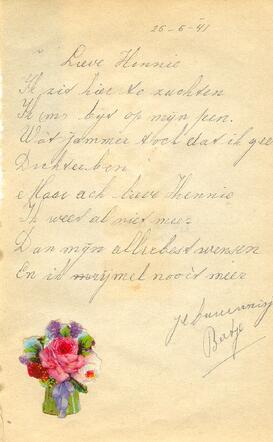 26-6-'41
Lieve Hennie
Ik zit hier te zuchten
Ik en bijt op mijn pen.
Wat jammer toch dat ik gee
Dichter ben
Maar ach lieve Hennie
Ik weet al niet meer
Dan mijn allerbest wensen
En ik rijmel nooit meer
Je vriendin
Batje